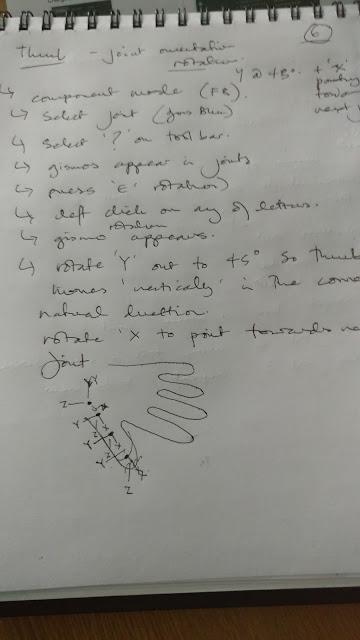 6
Thumb - joint orientation
rotation.
Y @ 45°. + 'x'
pointing
towards
next
↳ component mode (F8).
↳ Select joint (goes Blue)
↳ select '?' on tool bar.
↳ gismos appear in joints
↳ press 'E' rotation)
↳ left click on any of letters.
↳ rotation gismo appears.
↳ rotate 'Y' out to 45° so thumb
moves 'vertically' in the
natural direction.
rotate 'X to point towards
joint
Y
Z
X
Y
Z
X
Y
Z
X
Y
Z
X